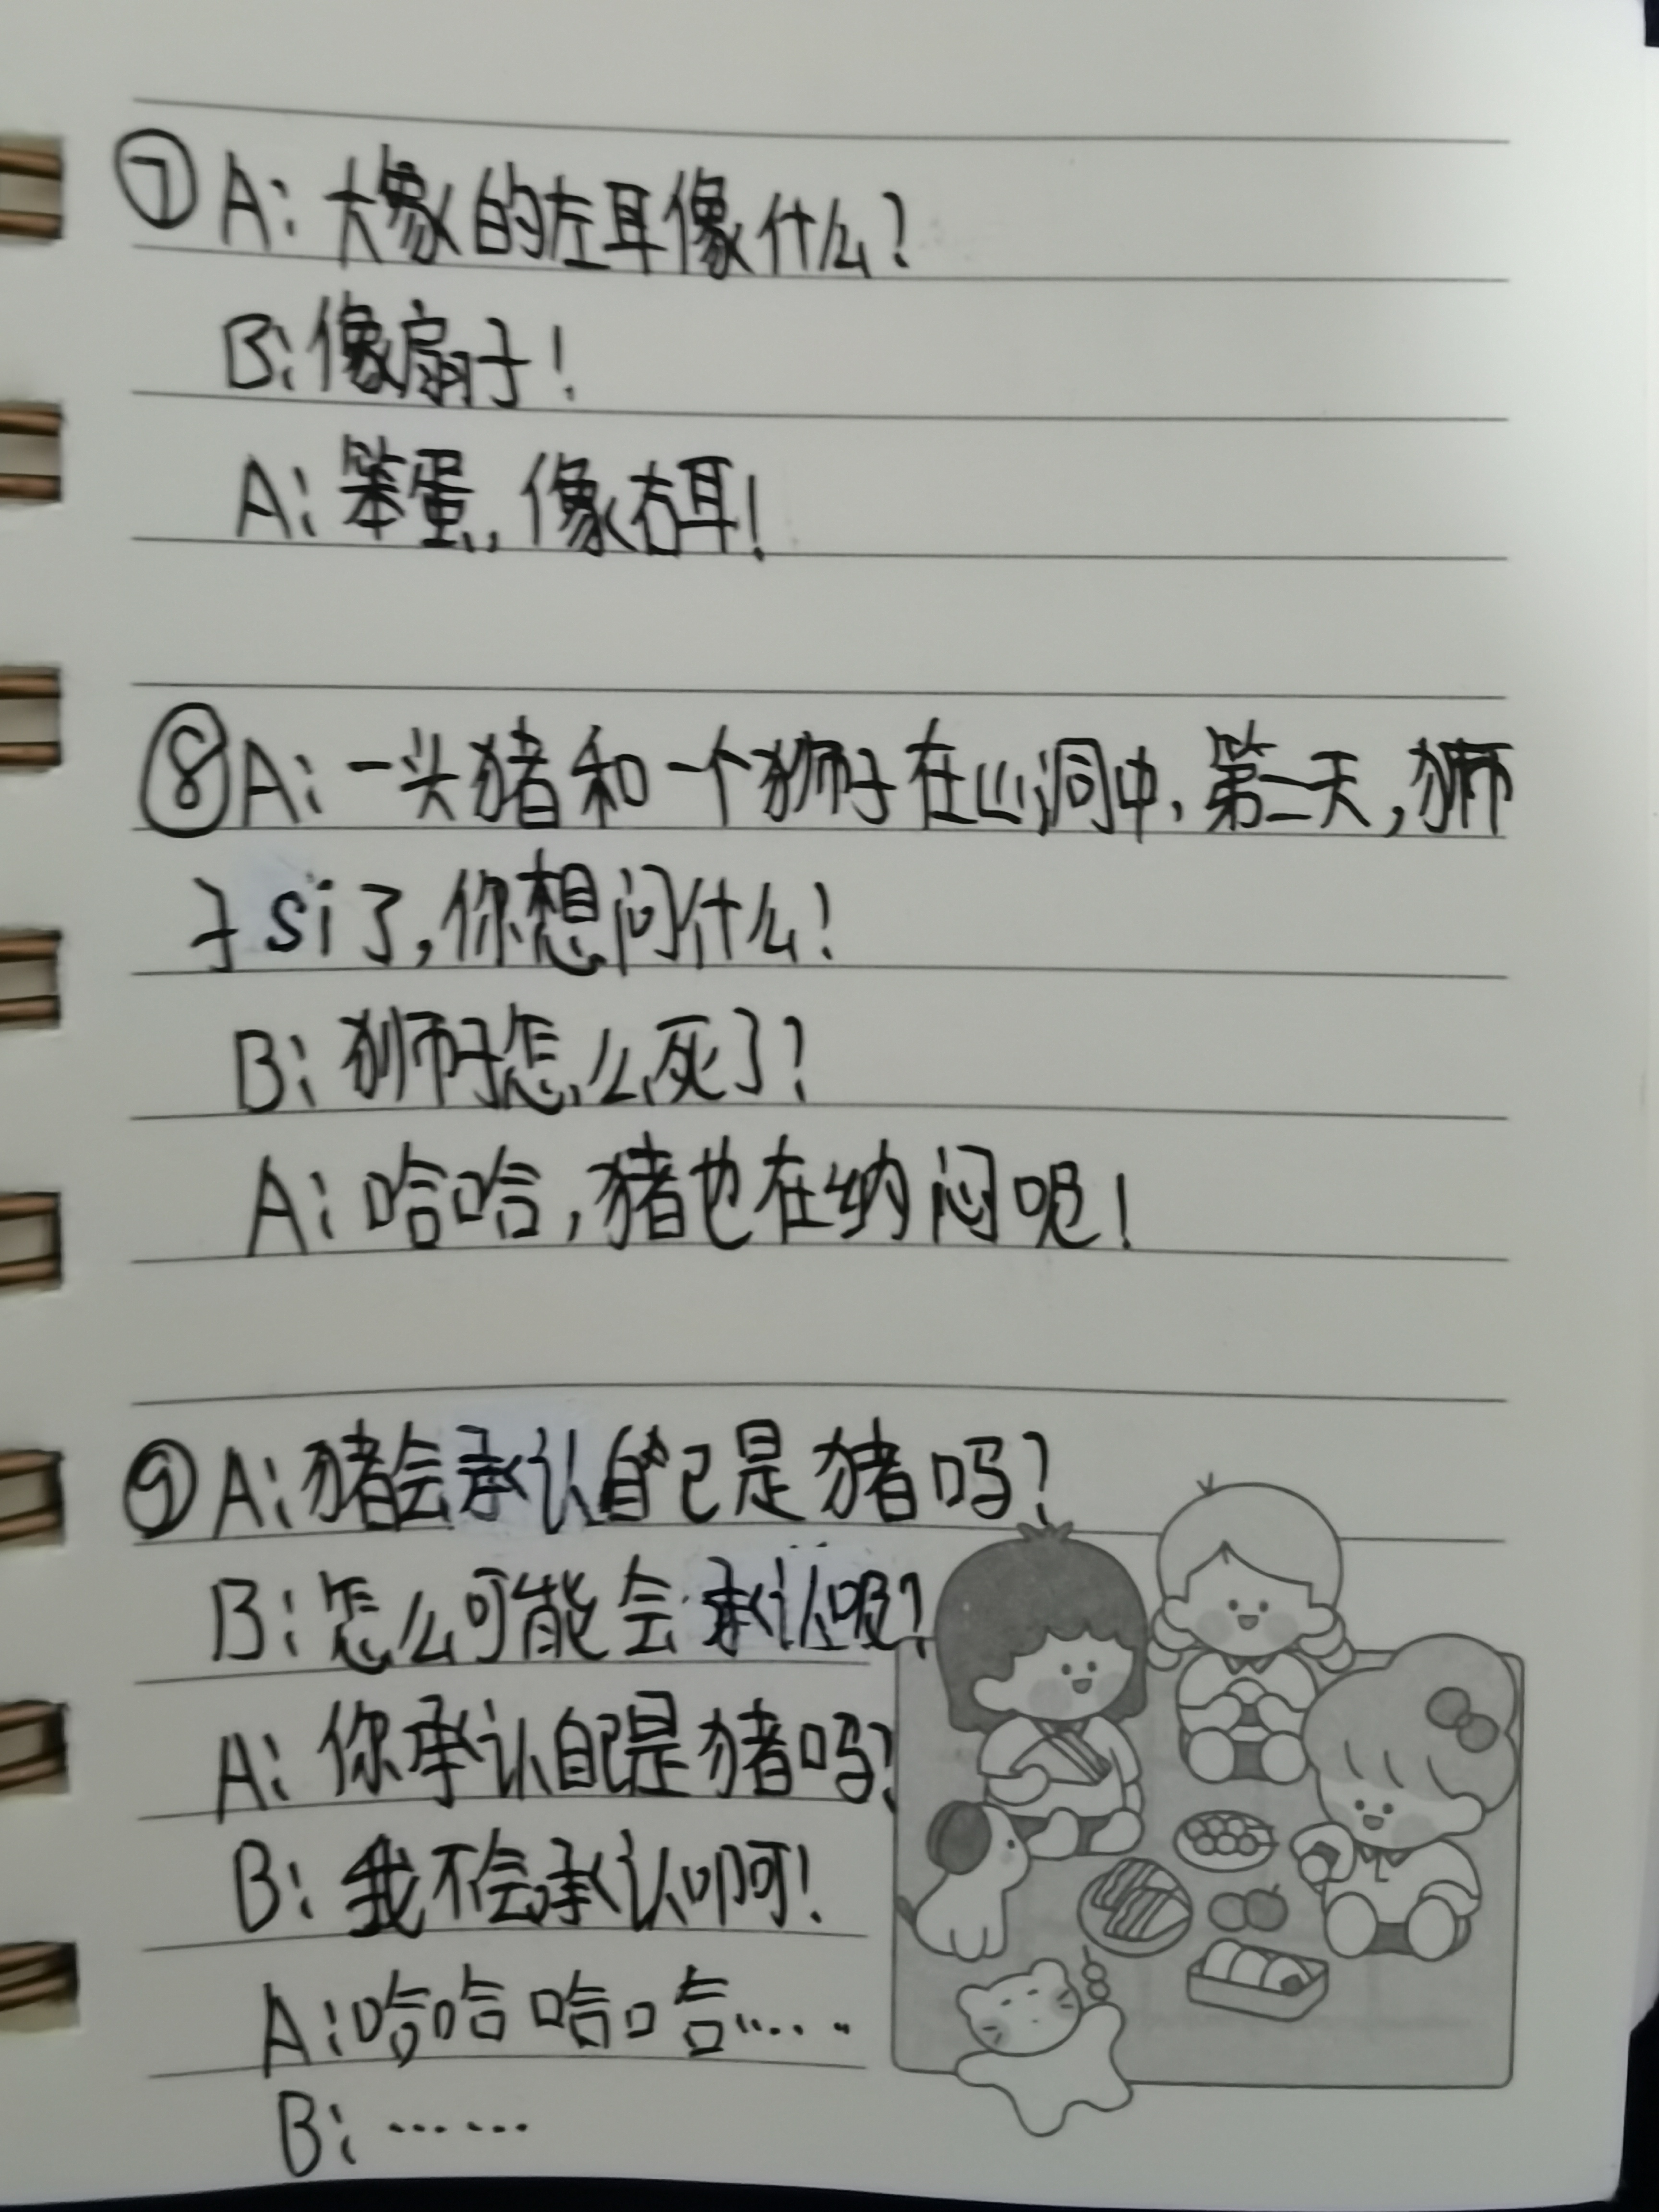 ⑦A:大象的左耳像什么?
B:像扇子!
A:笨蛋,像右耳!
⑧A:一头猪和一个狮子在山洞中,第二天,狮
子si了,你想问什么?
B:狮子怎么死了?
A:哈哈,猪也在纳闷呢!
⑨A:猪会承认自己是猪吗?
B:怎么可能会承认呢?
A:你承认自己是猪吗?
B:我不会承认啊!
A:哈哈哈哈……
B:……